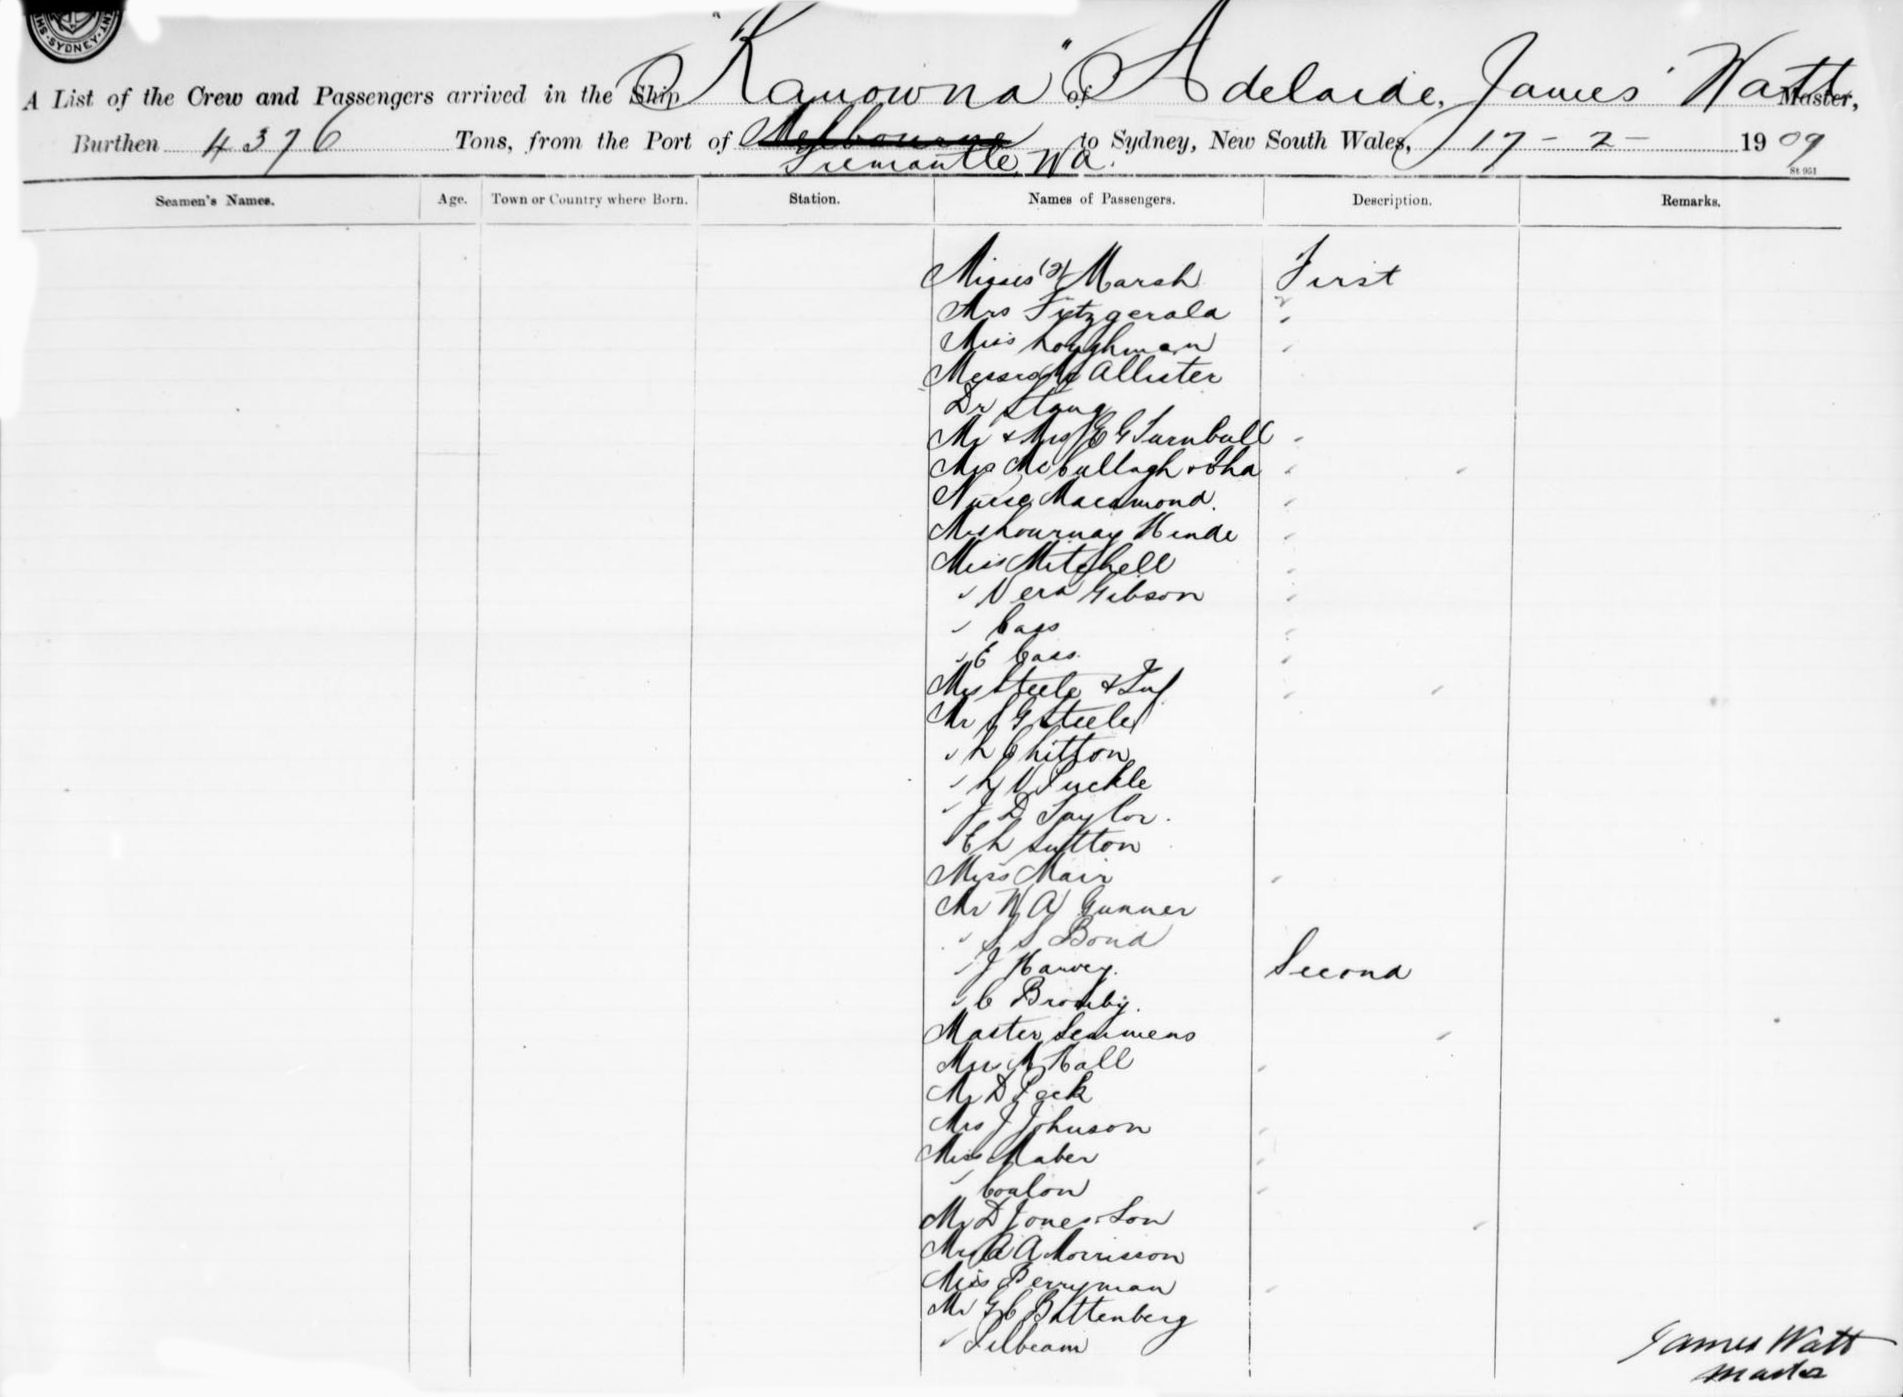 SYDNEY
A List of the Crew and Passengers arrived in the Ship "Kanowna" of Adelaide, James Watt Master,
Burthen 4376 Tons, from the Port of Melbourne to Sydney, New South Wales, 17-2-1909
Fremantle WA.
St. 951
Seamen's Names. Age. Town or Country where Born. Station. Names of Passengers. Description. Remarks.
Misses (2) Marsh First
Mrs Fitzgerald "
Miss Loughman "
Messrs McAllister
Dr Stang
Mr & Mrs E G Turnbull "
Mrs McCullagh & Cha "
Nurse Macamond. "
Mrs Hinde "
Miss Mitchell "
" Vera Gibson "
" Cass "
" E Cass "
Mrs Steele & Inf "
Mr S G Steele
" L Chitton
" L V Puckle
" J D Taylor.
" C L Sutton
Miss Mair "
Mr W A Gunner
" S S Bond
" J Harvey. Second
" C Bromby.
Master Semmens
Mrs M Hall "
Mr D Peck
Mrs J Johnson "
Miss Maber "
" Conlon "
Mr D Jones & Son
Mr A A Morrisson
Miss Perryman "
Mr G C Battenberg
" Pilbeam
James Watt
Master